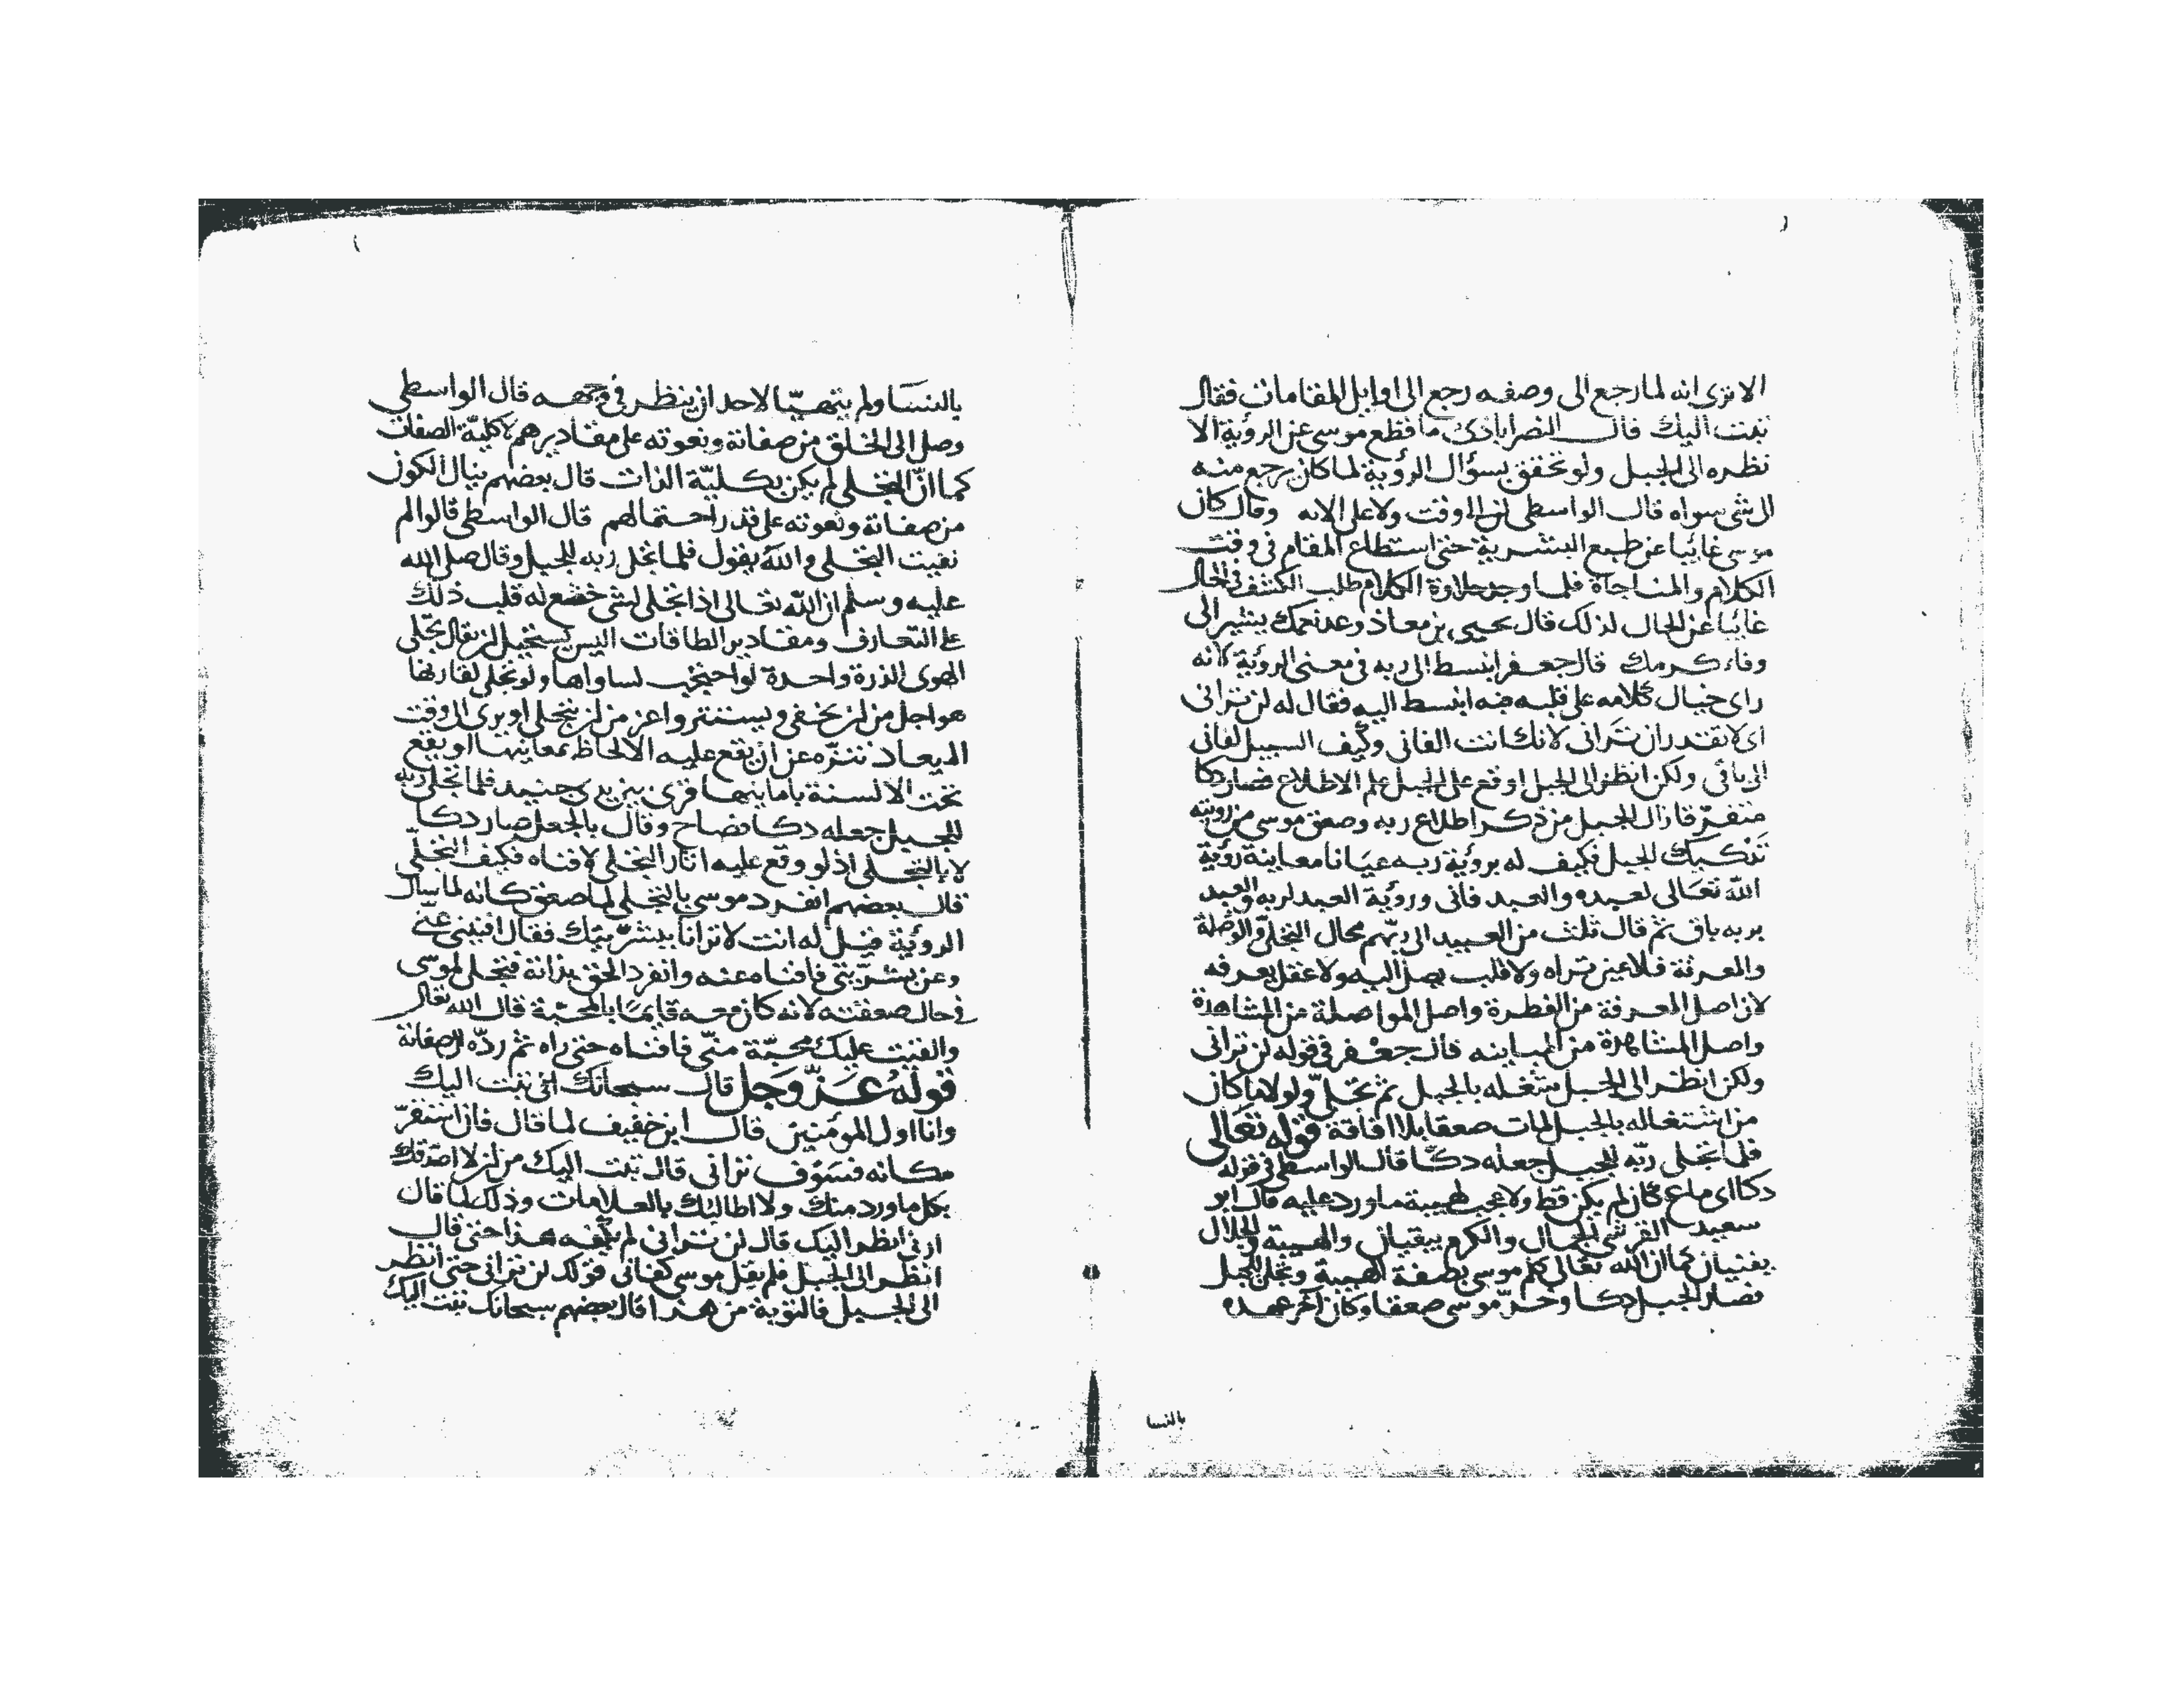 الا ترى انه لما رجع الى وصفه رجع الى اوايل المقامات فقال
تبت اليك قال النصراباذى ما قطع موسى عن الرؤية الا
نظره الى الجبل ولو تحقق بسؤال الرؤية لما كان رجع منه
الى شى سواه قال الواسطى لن الى وقت ولا على الابد وقال كان
موسى غايبا عن طبع البشرية حتى استطاع المقام فى وقت
الكلام والمناجاة فلما وجد حلاوة الكلام طلب الكشف فى الحال
غايبا عن الحال لذلك قال يحيى بن معاذ وعد نعمك يشير الى
وفاء كرمك قال جعفر انبسط الى ربه فى معنى الرؤية لانه
راى خيال كلامه على قلبه فيه انبسط اليه فقال له لن ترانى
اى لا تقدر ان ترانى لانك انت الفانى وكيف السبيل لفانى
الى باقى ولكن انظر الى الجبل اوقع على الجبل علم الاطلاع فصار دكا
متفرقا زال الجبل من ذكر اطلاع ربه وصعق موسى من رويته
تدكيك الجبل فكيف له برؤية ربه عيانا معاينة رؤية
الله تعالى لعبده والعبد فانى ورؤية العبد لربه والعبد
بربه باق ثم قال ثلث من العبيد الى ربهم محال التجلى والوصلة
والمعرفة فلا عين تراه ولا قلب يصل اليه ولا عقل يعرفه
لان اصل المعرفة من الفطرة واصل المواصلة من المشاهدة
واصل المشاهدة من المباينه قال جعفر فى قوله لن ترانى
ولكن انظر الى الجبل شغله بالجبل ثم تجلى ولولا ما كان
من اشتغاله بالجبل لمات صعقا بلا افاقة قوله تعالى
فلما تجلى ربه للجبل جعله دكا قال الواسطى فى قوله
دكا اى ماع كان لم يكن قط ولا عجب لهيبة ما ورد عليه قال ابو
سعيد القرشى الجمال والكرم يبقيان والهيبة والجلال
يفنيان كما ان الله تعالى كلم موسى بصفة الهيبة وتجلى للجبل
فصار الجبل دكا وخر موسى صعقا وكان آخر عهده
بالنسا
بالنسا ولم يتهيّا لاحد ان ينظر فى وجهه قال الواسطى
وصل الى الخلق من صفاته ونعوته على مقاديرهم لا كلية الصفات
كما ان التجلى لم يكن بكليّة الذات قال بعضهم ينال الكون
من صفاته ونعوته على قدر احتمالهم قال الواسطى قالوا لم
نفيت التجلى والله يقول فلما تجلى ربه للجبل وقال صلى الله
عليه وسلم ان الله تعالى اذا تجلى لشى خضع له قلت ذلك
على التعارف ومقادير الطاقات اليس يستحيل ان يقال تجلّى
الهوى لذرة واحدة لو احتجب لساواها ولو تجلى لقارنها
هو اجل من ان يخفى ويستتر واعز من ان يتجلى او يرى الى وقت
الميعاد تنزه عن ان يقع عليه الالحاظ بمعاينها او يقع
تحت الالسنة قرى بين يدى جنيد فلما تجلى ربه
للجبل جعله دكا فصاح وقال بالجعل صار دكا
لا بالتجلى اذ لو وقع عليه اثار التجلى لافناه فكيف التجلّى
قال بعضهم انفرد موسى بالتجلى لما صعق كانه لما سال
الرؤية قيل له انت لا ترانا ببشرّيتك فقال افنينى عنّى
وعن بشرّيتى فافناه عنه وانفرد الحق بذاته فتجلى لموسى
فى حال صعقته لانه كان معه قايما بالمحبّة قال الله تعالى
والقيت عليك محبّة منّى فافناه حتى راه ثم ردّه الى صفاته
قوله عزّ وجلّ قال سبحانك انى تبت اليك
وانا اول المؤمنين قال ابن خفيف لما قال فان استقرّ
مكانه فسوف ترانى قال تبت اليك من ان لا اصدقك
بكل ما ورد منك ولا اطالبك بالعلامات وذلك لما قال
ارنى انظر اليك قال لن ترانى لم يكفه هذا حتى قال
انظر الى الجبل فلم يقل موسى كفانى قولك لن ترانى حتى انظر
الى الجبل فالتوبة من هذا قال بعضهم سبحانك تبت اليك